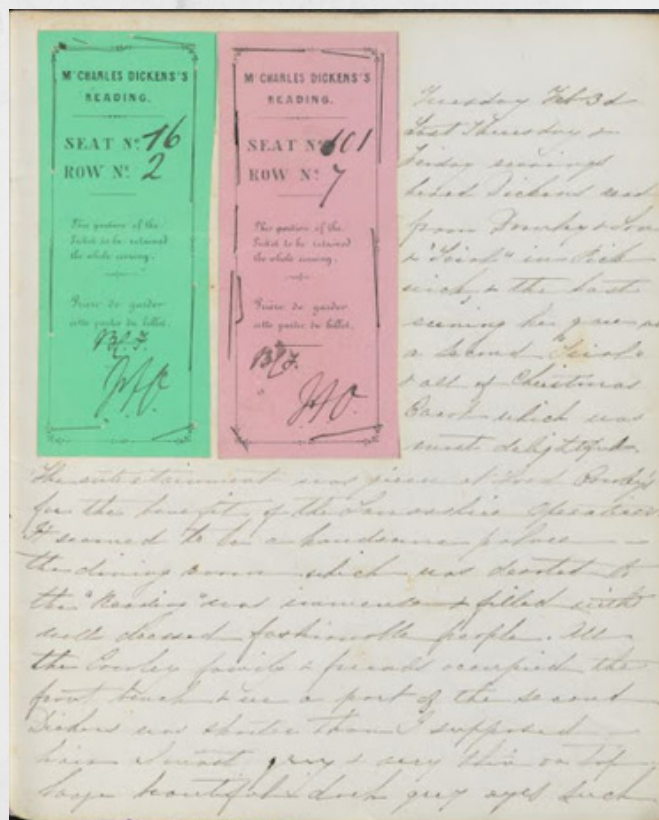 Mr CHARLES DICKENS'S
READING.
SEAT No. 16
ROW No. 2
This portion of the
Ticket to be retained
the whole evening.
Prière de garder
cette partie du billet.
Bl. F.
Mr CHARLES DICKENS'S
READING.
SEAT No. 101
ROW No. 7
This portion of the
Ticket to be retained
the whole evening.
Prière de garder
cette partie du billet.
Bl. F.
Tuesday Feb 3d
Last Thursday &
Friday evenings
heard Dickens read
from Dombey & Son
& "Trial" in Pick
wick & the last
evening he gave us
a second "Trial"
& all of Christmas
Carol which was
most delightful.
The entertainment was given at Lord Cowley's
for the benefit of the Lancashire Operatives
It seemed to be a handsome palace —
the dining room which was devoted to
the "Reading" was immense & filled with
well dressed fashionable people. All
the Cowley family & friends occupied the
front bench & we a part of the second
Dickens was shorter than I supposed —
hair almost grey & very thin on top
large beautiful dark grey eyes such